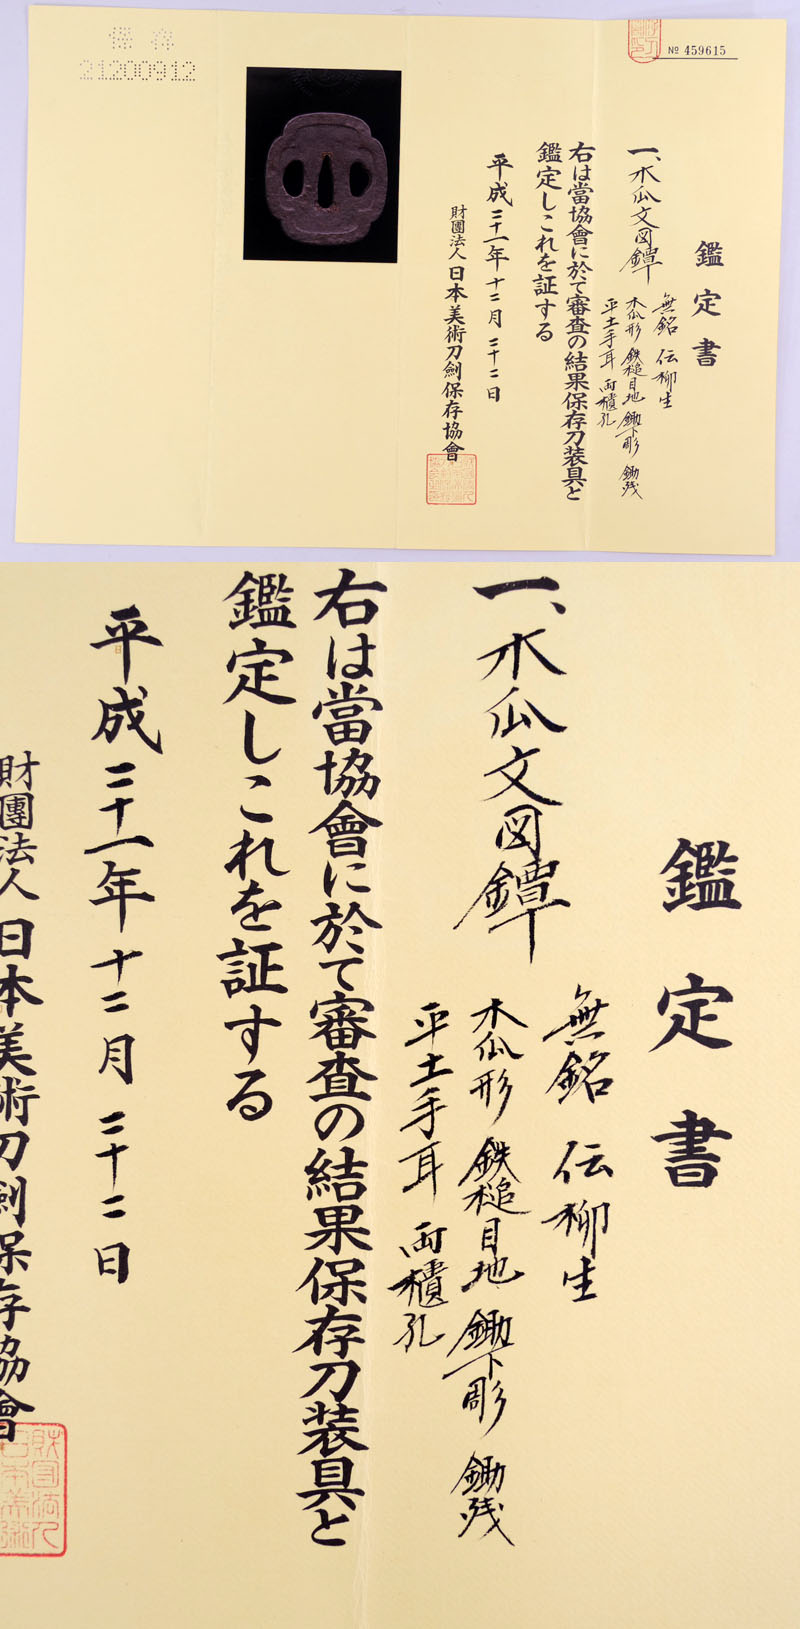 保存
21200912
№ 459615
鑑定書
一、木瓜文図鐔
無銘 伝柳生
木瓜形 鉄槌目地 鋤下彫 鋤残
平土手耳 両櫃孔
右は當協會に於て審査の結果保存刀装具と
鑑定しこれを証する
平成二十一年十二月二十二日
財團法人日本美術刀劍保存協會
鑑定書
一、木瓜文図鐔
無銘 伝柳生
木瓜形 鉄槌目地 鋤下彫 鋤残
平土手耳 両櫃孔
右は當協會に於て審査の結果保存刀装具と
鑑定しこれを証する
平成二十一年十二月二十二日
財團法人日本美術刀劍保存協會